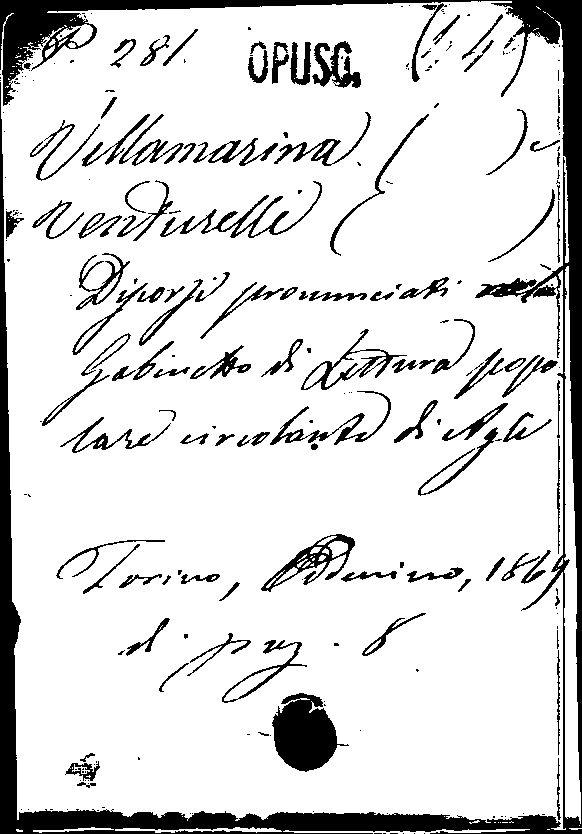 P. 281. OPUSC. (14)
Villamarina ( ) e
Venturelli ( )
Discorsi pronunciati nel
Gabinetto di Lettura popo-
lare circolante di Agliè
Torino, Oddenino, 1869
di pag. 8